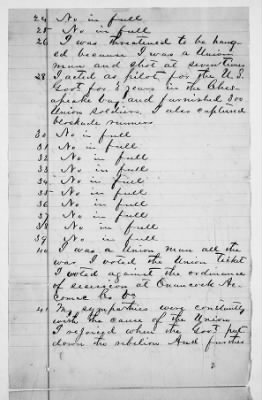 24 No in full
25 No in full
26 I was threatened to be hang-
ed because I was a Union
man and shot at seven times
28 I acted as pilot for the U.S.
Govt for 3 years in the Ches-
apeake bay and furnished 300
Union soldiers, I also captured
blockade runners
30 No in full
31 No in full
32 No in full
33 No in full
34 No in full
35 No in full
36 No in full
37 No in full
38 No in full
39 No in full
40 I was a Union man all the
war I voted the Union ticket
I voted against the ordinance
of secession at Onancock Ac-
comac Co Va
41 My sympathies were constantly
with the cause of the Union
I rejoiced when the Govt put
down the rebelion And further